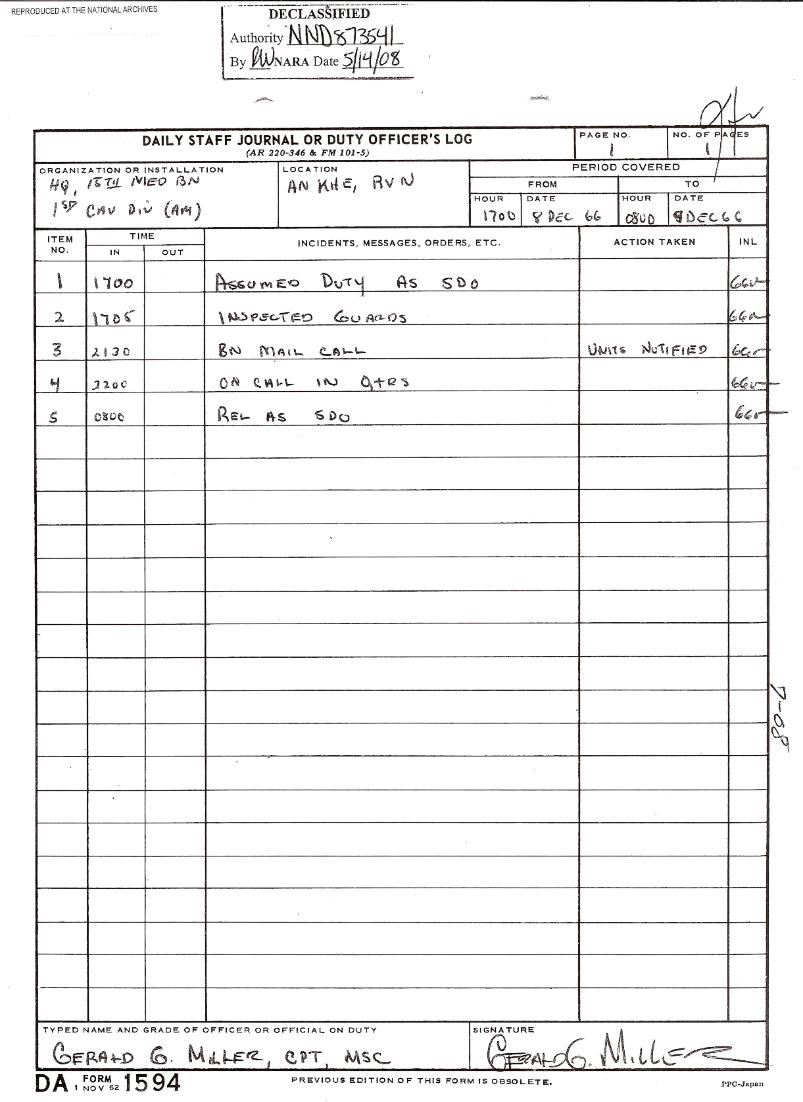 REPRODUCED AT THE NATIONAL ARCHIVES
DECLASSIFIED
Authority NND873541
By NARA Date 5/14/08
DAILY STAFF JOURNAL OR DUTY OFFICER'S LOG
(AR 220-346 & FM 101-5)
PAGE NO.
1
NO. OF PAGES
1
ORGANIZATION OR INSTALLATION
HQ, 15TH MED BN
1ST CAV DIV (AM)
LOCATION
AN KHE, RVN
PERIOD COVERED
FROM
TO
HOUR
DATE
HOUR
DATE
1700 8 DEC 66 0800 9 DEC 66
ITEM NO.
TIME
IN
OUT
INCIDENTS, MESSAGES, ORDERS, ETC.
ACTION TAKEN
INL
1 1700 ASSUMED DUTY AS SDO
2 1705 INSPECTED GUARDS
3 2130 BN MAIL CALL UNITS NOTIFIED
4 2200 ON CALL IN QTRS
5 0800 REL AS SDO
TYPED NAME AND GRADE OF OFFICER OR OFFICIAL ON DUTY
GERALD G. MILLER, CPT, MSC
SIGNATURE
GERALD G. MILLER
DA FORM 1 NOV 62 1594
PREVIOUS EDITION OF THIS FORM IS OBSOLETE.
PPC-Japan